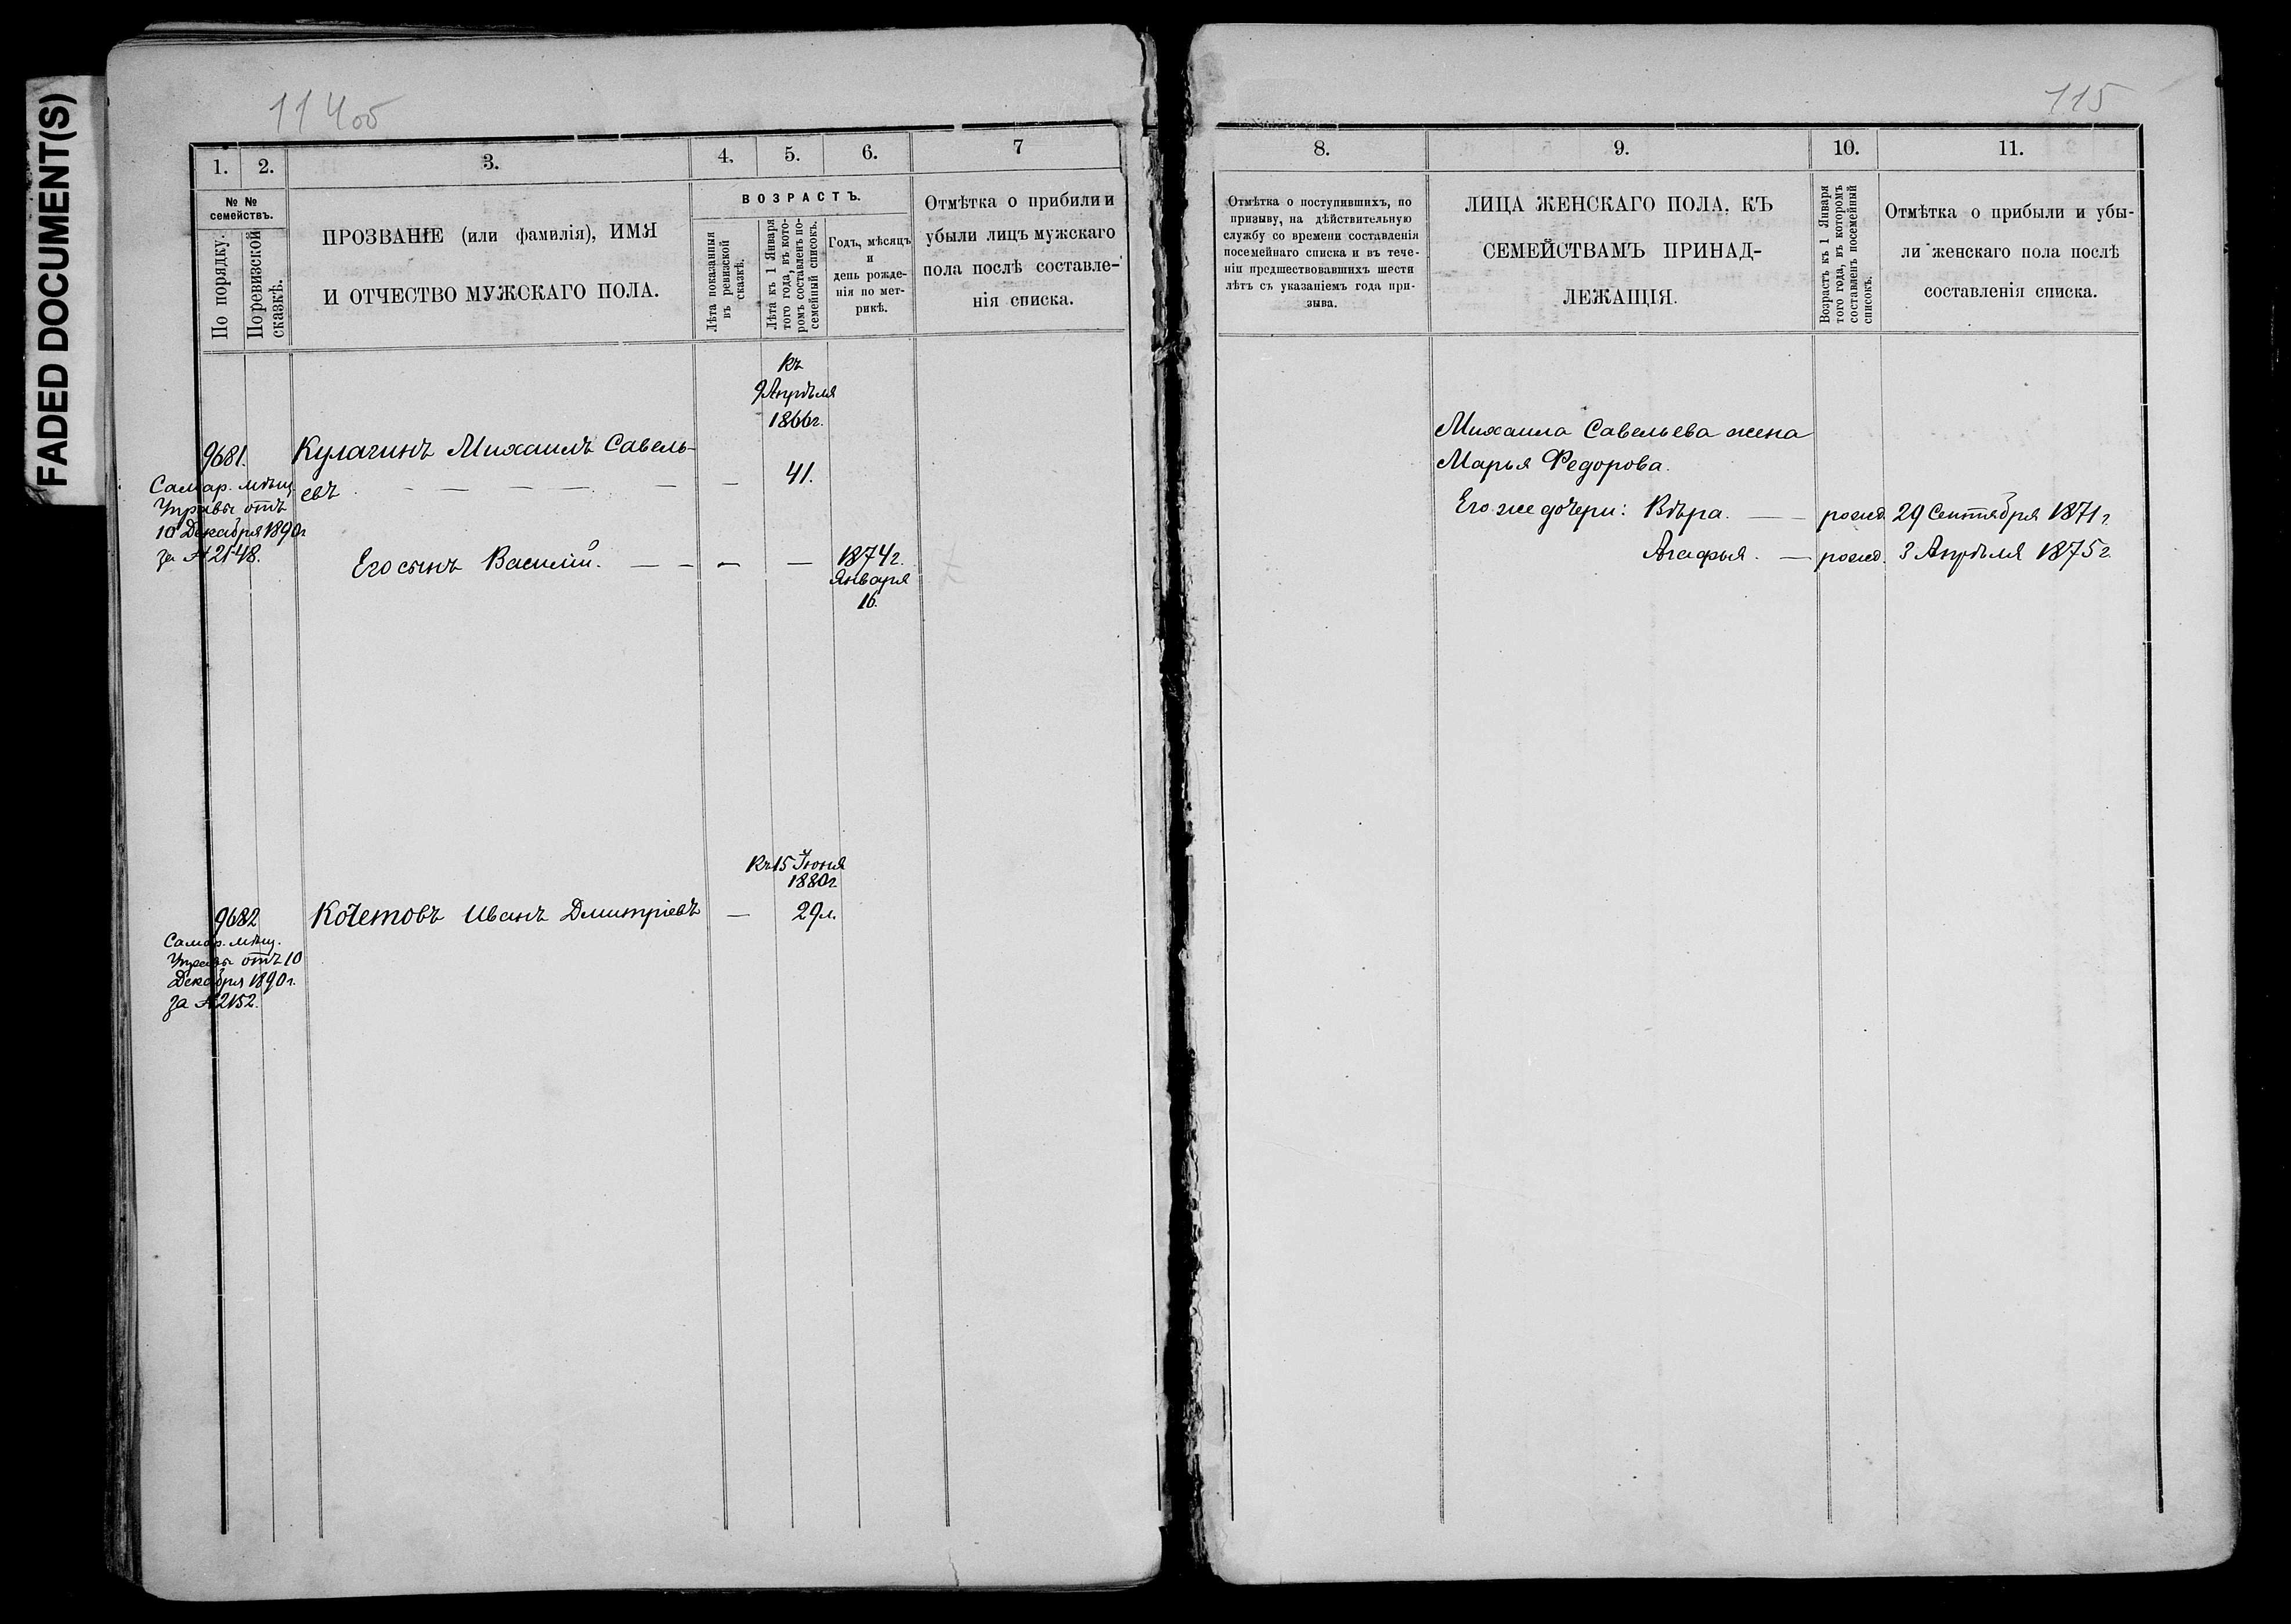 FADED DOCUMENT(S)
114об
1.
2.
3.
4.
5.
6.
7
№ №
семействъ.
По порядку.
По ревизской
сказкѣ.
ПРОЗВАНІЕ (или фамилія), ИМЯ
И ОТЧЕСТВО МУЖСКАГО ПОЛА.
ВОЗРАСТЪ.
Лѣта показанныя
въ ревизской
сказкѣ.
Лѣта къ 1 Января
того года, въ кото-
ромъ составленъ по-
семейный списокъ.
Годъ, мѣсяцъ
и
день рожде-
нія по мет-
рикѣ.
Отмѣтка о прибыли и
убыли лицъ мужскаго
пола послѣ составле-
нія списка.
къ
9 Апрѣля
1866 г.
9681.
Кулагинъ Михаилъ Савель-
евъ — — — — — — 41.
Самар. мѣщ.
Управы отъ
10 Декабря 1890 г
за № 2148.
Его сынъ Василій. — — — — 1874 г.
Января
16.
Къ 15 Іюня
1880 г
9682 Кочетовъ Иванъ Дмитріевъ — 29 л.
Самар. мѣщ.
Управы отъ 10
Декабря 1890 г.
за № 2152.
115
8.
9.
10.
11.
Отмѣтка о поступившихъ, по
призыву, на дѣйствительную
службу со времени составленія
посемейнаго списка и въ тече-
ніи предшествовавшихъ шести
лѣтъ съ указаніемъ года при-
зыва.
ЛИЦА ЖЕНСКАГО ПОЛА, КЪ
СЕМЕЙСТВАМЪ ПРИНАД-
ЛЕЖАЩІЯ.
Возрастъ къ 1 Января
того года, въ которомъ
составленъ посемейный
списокъ.
Отмѣтка о прибыли и убы-
ли женскаго пола послѣ
составленія списка.
Михаила Савельева жена
Марья Федорова.
Его же дочери: Вѣра. — — рожд. 29 Сентября 1871 г.
Агафья. — рожд. 3 Апрѣля 1875 г.